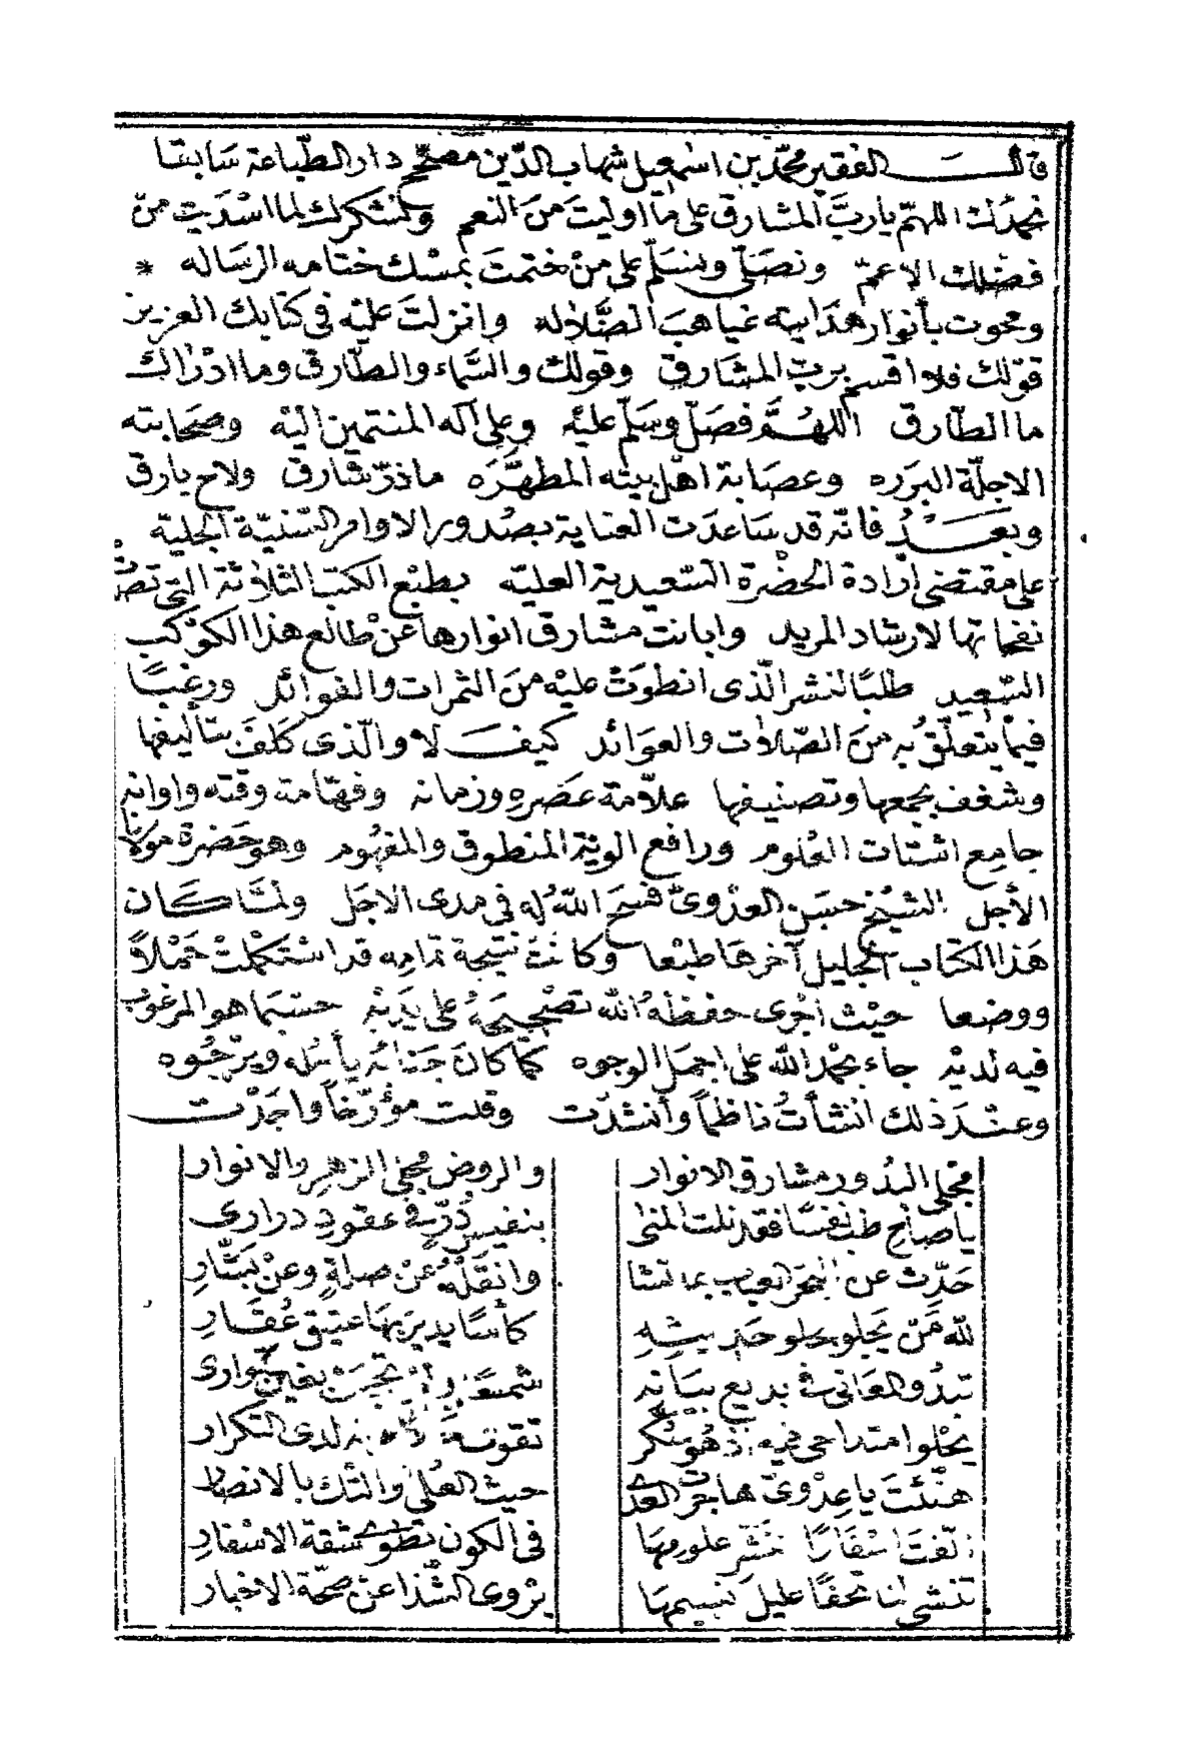 قال الفقير محمد بن اسمعيل شهاب الدين مصحح دار الطباعة سابقا
نحمدك اللهم يارب المشارق على ما اوليت من النعم ونشكرك لما اسديت من
فضلك الاعم ونصلى ونسلم على من ختمت بمسك ختامه الرساله *
ومحوت بأنوار هدايته غياهب الضلاله وانزلت عليه فى كتابك العزيز
قولك فلا اقسم برب المشارق وقولك والسماء والطارق وما ادراك
ما الطارق اللهم فصل وسلم عليه وعلى آله المنتمين اليه وصحابته
الاجلة البرره وعصابة اهل بيته المطهره ما ذر شارق ولاح بارق
وبعد فانه قد ساعدت العناية بصدور الاوامر السنية الجلية
على مقتضى ارادة الحضرة السعيدية العليه بطبع الكتب الثلاثة التى
نفحاتها لارشاد المريد وابانت مشارق انوارها عن طالع هذا الكوكب
السعيد طلبا لنشر الذى انطوت عليه من الثمرات والفوائد ورغبا
فيما يتعلق به من الصلات والعوائد كيف لا والذى كلف بتأليفها
وشغف بجمعها وتصنيفها علامة عصره وزمانه وفهامة وقته واوانه
جامع اشتات العلوم ورافع الوية المنطوق والمفهوم وهو حضرة مولانا
الأجل الشيخ حسن العدوى فسح الله له فى مدى الاجل ولما كان
هذا الكتاب الجليل آخرها طبعا وكانت نتيجة تمامه قد استكملت حملا
ووضعا حيث اجرى حفظه الله تصحيحه على يديه حسبما هو المرغوب
فيه لديه جاء بحمد الله على اجمل الوجوه كما كان جنابه يأمله ويرجوه
وعند ذلك انشأت ناظما وأنشدت وقلت مؤرخا واجدت
مجلى البدور مشارق الانوار والروض مجنى الزهر والانوار
يا صاح طب نفسا فقد نلت المنى بنفيس در فى عقود درارى
حدث عن البحر العباب بما تشا وانقله عن صلة وعن بشار
لله من يجلو بحلو حديثه كأسا يدير بها عتيق عقار
تبدو المعانى فى بديع بيانه شمسا
يحلو امتداحى فيه اذ هو سكر لدى التكرار
هنئت يا عدوى هاجرت العدى حيث العلى والتك بالانصار
الفت اسفارا تنشر علومها فى الكون تطوى شقة الاسفار
تنشى لنا تحفا عليل نسيمها يروى الشذا عن صحة الاخبار